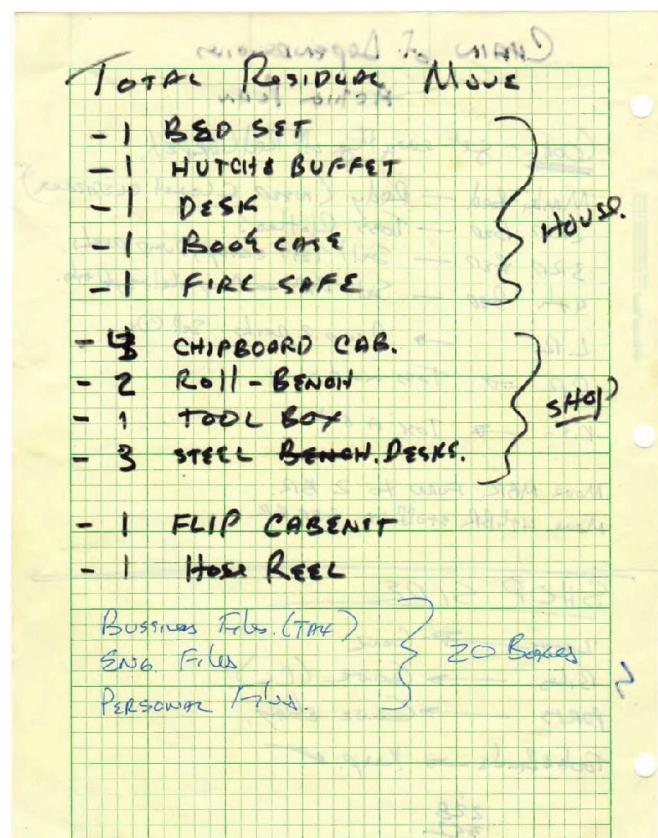 TOTAL RESIDUAL MOVE
- 1 BED SET
- 1 HUTCH & BUFFET
- 1 DESK
- 1 BOOK CASE
- 1 FIRE SAFE
HOUSE.
- 4 CHIPBOARD CAB.
- 2 Roll-BENCH
- 1 TOOL BOX
- 3 STEEL BENCH. DESKS.
SHOP
- 1 FLIP CABENIT
- 1 HOSE REEL
BUSSINES FILES. (TAX)
ENG. FILES
PERSONAL FILES.
20 BOXES